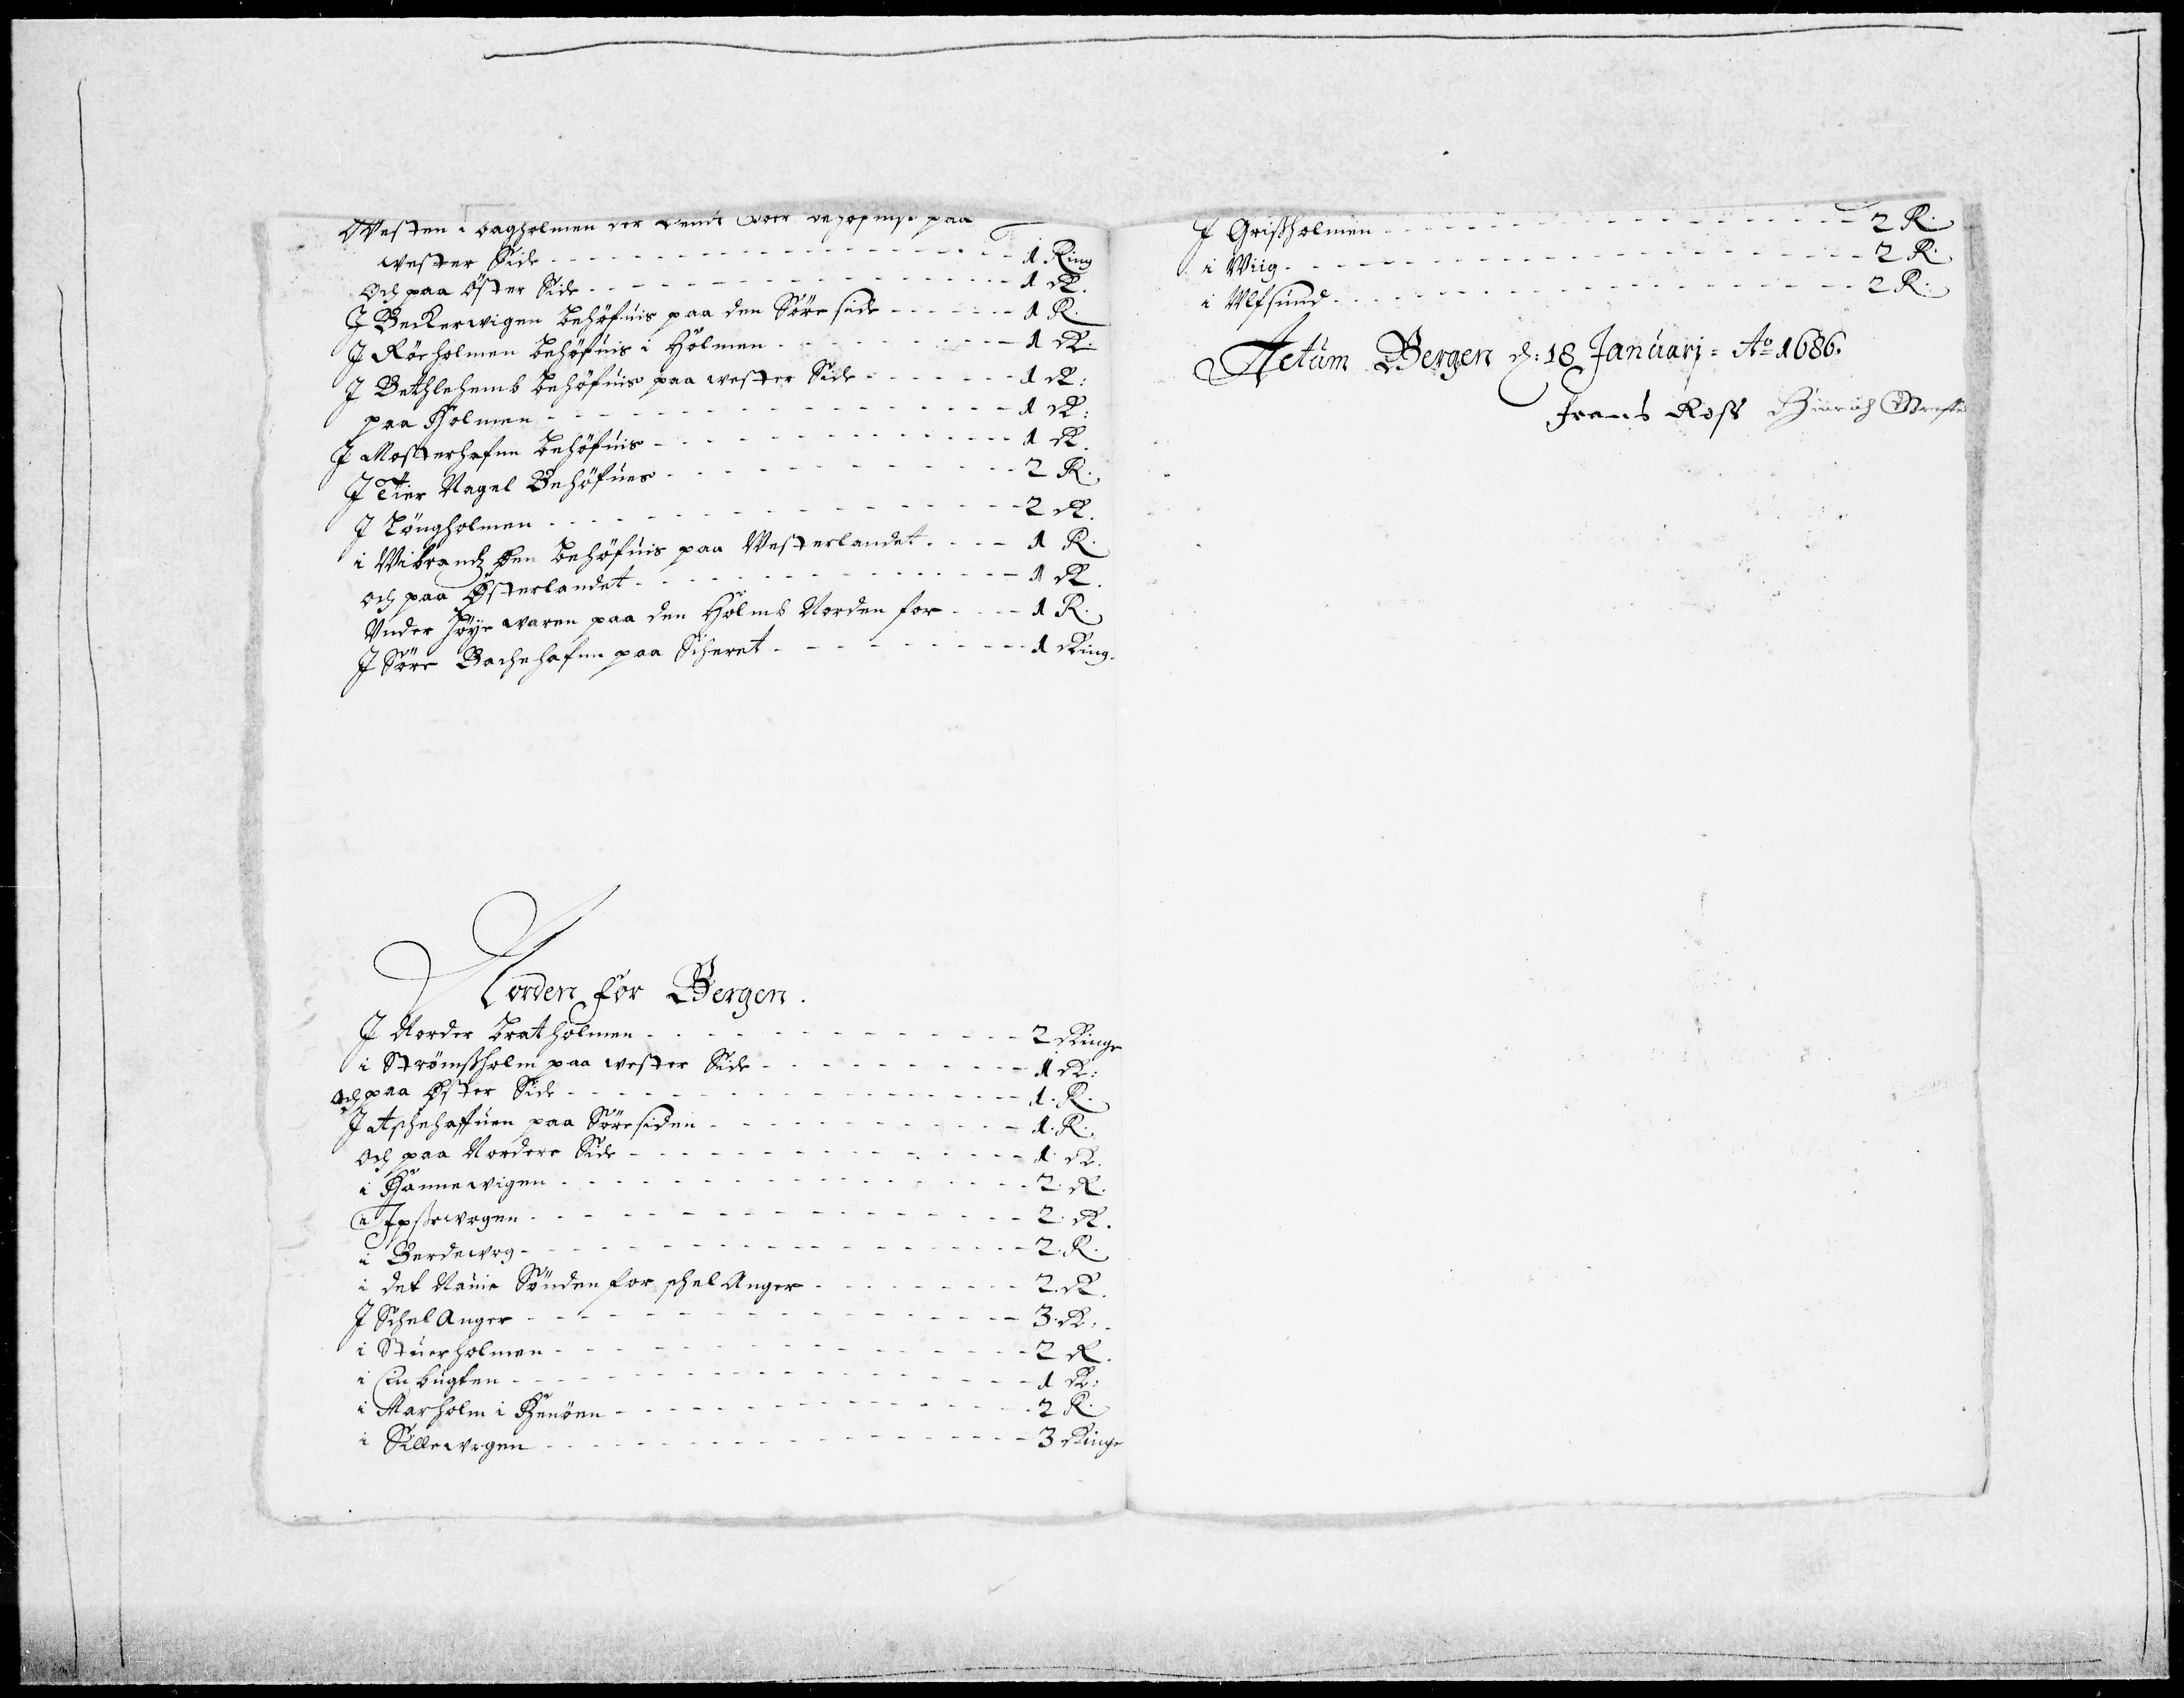 Westen i bagholmen der paa
wester Side - - - 1 Ring
Och paa Öster Side - - - 1 R.
J Beckerwigen behöfuis paa den Söre side - - - 1 R.
J Röeholmen behöfuis i Hölmen - - - 1 R.
J Bethlehemb behöfuis paa wester Side - - - 1 R:
paa Holmen - - - 1 R:
J Mosterhafun behöfuis - - - 1 R.
J Nagel Behöfues - - - 2 R.
J Löngholmen - - - 2 R.
i behöfuis paa Westerlandet - - - 1 R.
och paa Österlandet - - - 1 R.
Vnder höye waren paa den Hölmb Norden for - - - 1 R.
J Söre Bachehafun paa Scheret - - - 1 Ring.
Norden for Bergen.
J Norder bratholmen - - - 2 Ringe
i Strömßholm paa wester Side - - - 1 R:
Och paa Öster Side - - - 1. R.
J Aschehaffuen paa Söresiden - - - 1. R.
Och paa Nordere Side - - - 1 R.
i Hannewigen - - - 2. R.
i - - - 2. R.
i Berdewog - - - 2. R.
i det Naue Sönden for schel Anger - - - 2. R.
J Schel Anger - - - 3. R:
i Stuerholmen - - - 2 R.
i bugten - - - 1 R:
i Marholm i Henöen - - - 2 R.
i Sillewogen - - - 3 Ringe
J Grißholmen - - - 2 R.
i Wiig - - - 2 R.
i Vlfsund - - - 2 R.
Actum Bergen d: 18 Januarj = Ao 1686.
Frans Ross Hinrich